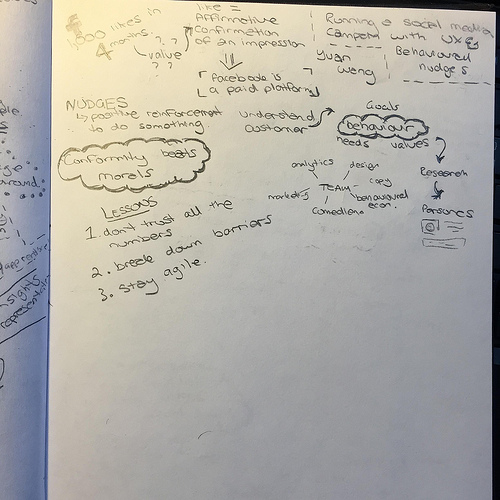 1,600 likes in
4 months
? ?
value
? ?
like =
Affirmative
confirmation
of an impression
Facebook is
a paid platform
Running a social media
campaign with UX &
Behavioural
nudges
Yuan
Wang
NUDGES
positive reinforcement
to do something.
understand
customer
Goals
behaviour
needs values
Research
Personas
Conformity beats
morals
analytics
design
copy
TEAM
marketing
behavioural
econ.
Comedienne
LESSONS
1. don't trust all the
numbers
2. break down barriers
3. stay agile.
around.